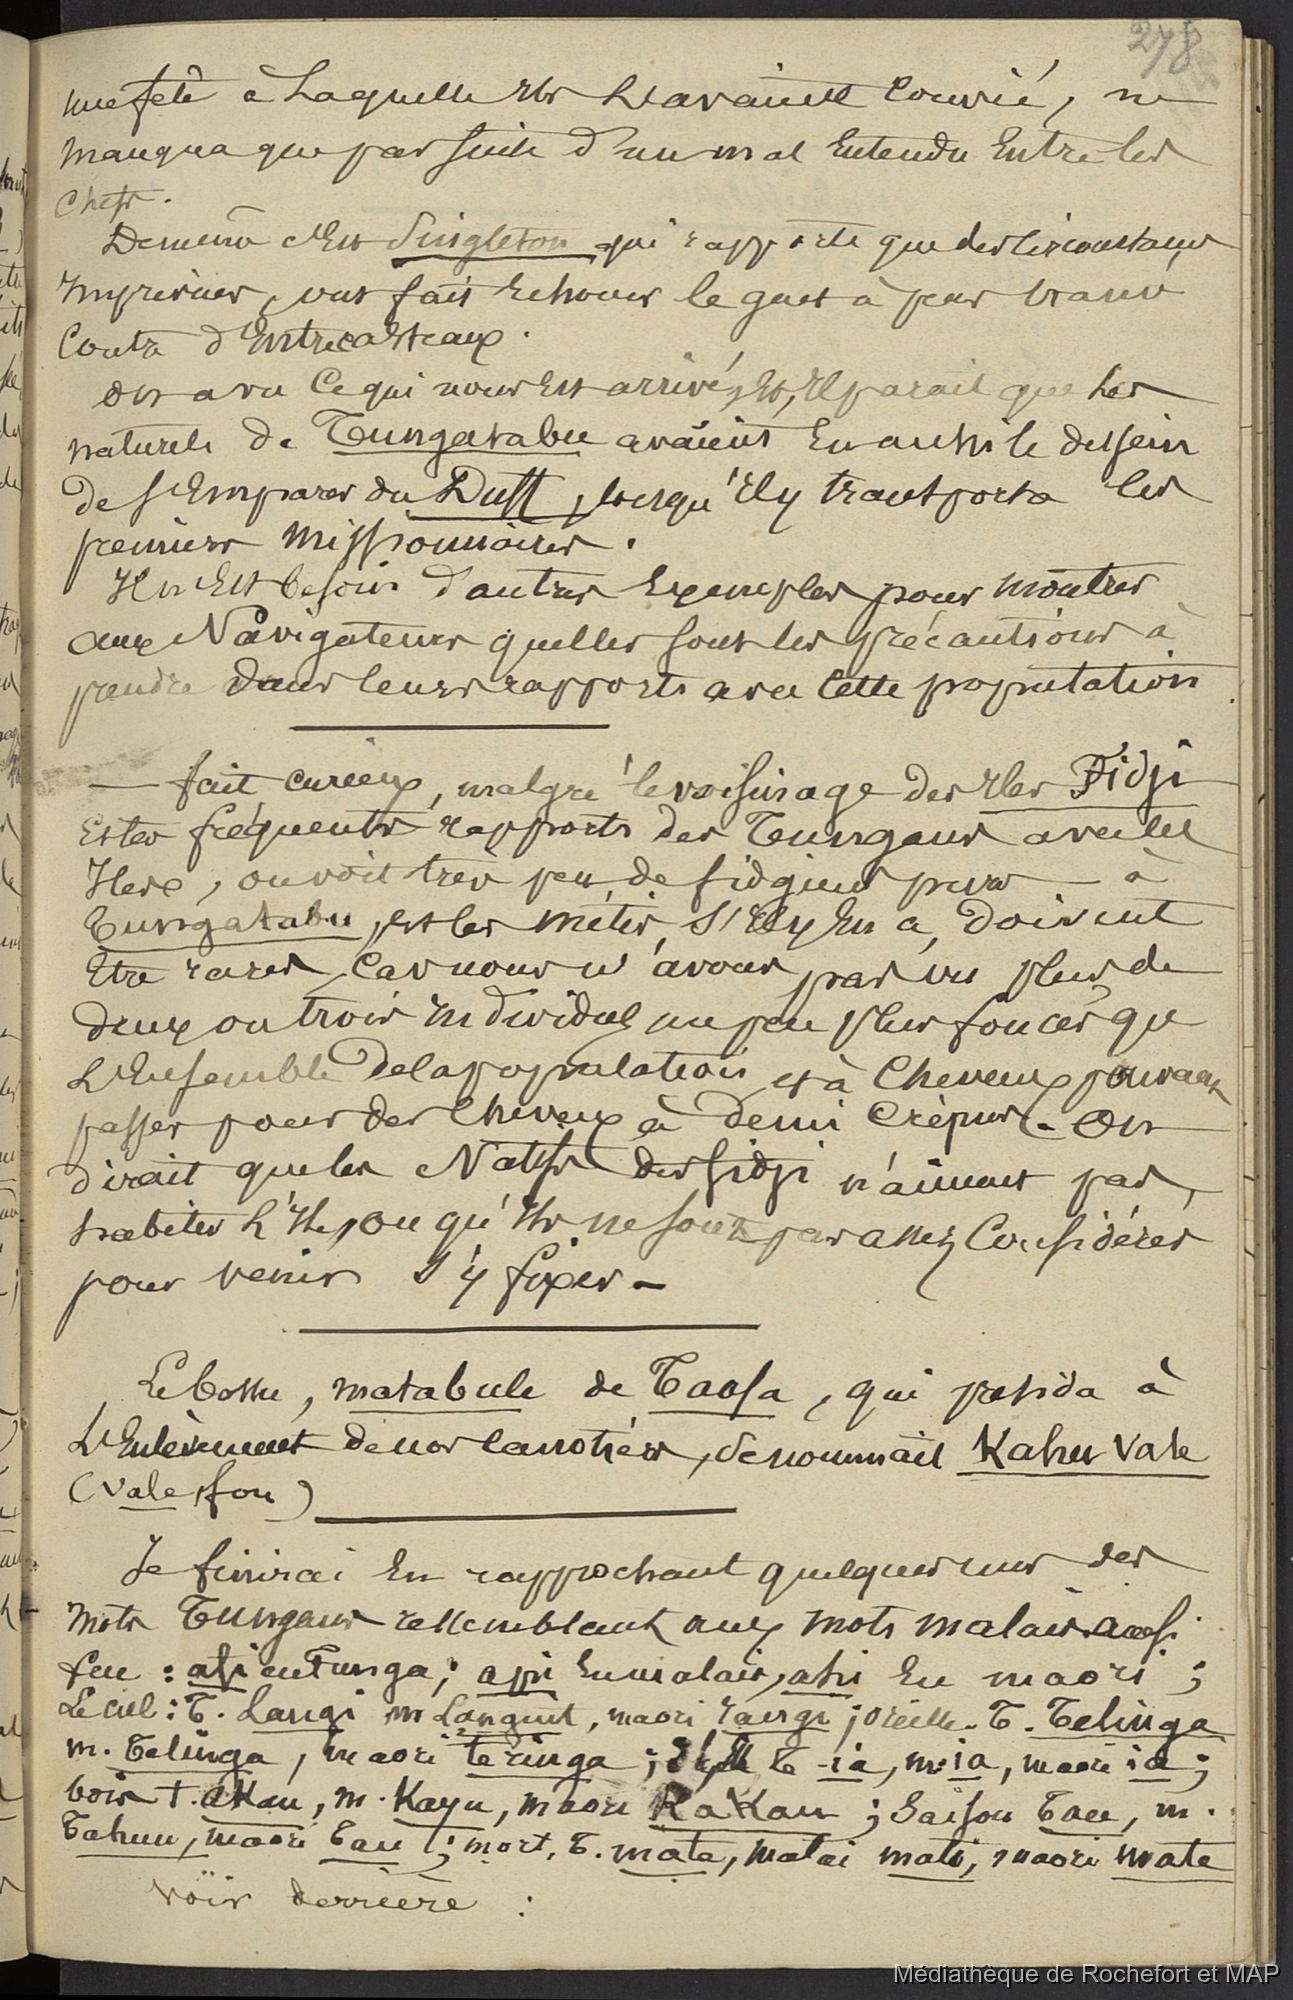 278
une fête à laquelle ils l'avaient convié, ne
manqua que par suite d'un mal entendu entre les
chefs.
De même c'est Singleton qui rapporte que des circonstances
imprévues, ont fait échouer le guet à pens tramé
contre d'Entrecasteaux.
on a vu ce qui nous est arrivé, et, il parait que les
naturels de Tungatabu avaient eu aussi le dessein
de s'emparer du Duff, lorsqu'il y transporta les
premiers missionnaires.
Il n'est besoin d'autres exemples pour montrer
aux Navigateurs quelles sont les précautions à
prendre dans leurs rapports avec cette population
— fait curieux, malgré le voisinage des iles Fidji
et les fréquents rapports des Tungans avec les
iles, on voit très peu de fidgiens purs à
Tungatabu, et les métis, s'il y en a, doivent
être rares, car nous n'avons pas vu plus de
deux ou trois individus un peu plus foncés que
l'ensemble de la population et à cheveux pouvant
passer pour des cheveux à demi crépus. On
dirait que les Natifs des fidji n'aiment pas
habiter l'ile, ou qu'ils ne sont pas assez considérés
pour venir s'y fixer —
Le bossu, matabule de Taofa, qui présida à
l'enlèvement de nos canotiers, se nommait Kahu Vale
(Vale, fou)
Je finirai en rapprochant quelques uns des
mots Tungans ressemblant aux mots malais ainsi
feu : afi en Tunga ; api en malais, ahi en maori ;
Le ciel : T. Langi m Languit, maori rangi ; oreille. T. Telinga
m. Telinga, maori teringa ; T - ia, m. ia, maori ia ;
bois T. akau, m. Kayu, maori Rakau ; Saison Tau, m.
Tahun, maori Tau ; mort, T. mate, malai mati, maori mate
voir derrière :
Médiathèque de Rochefort et MAP